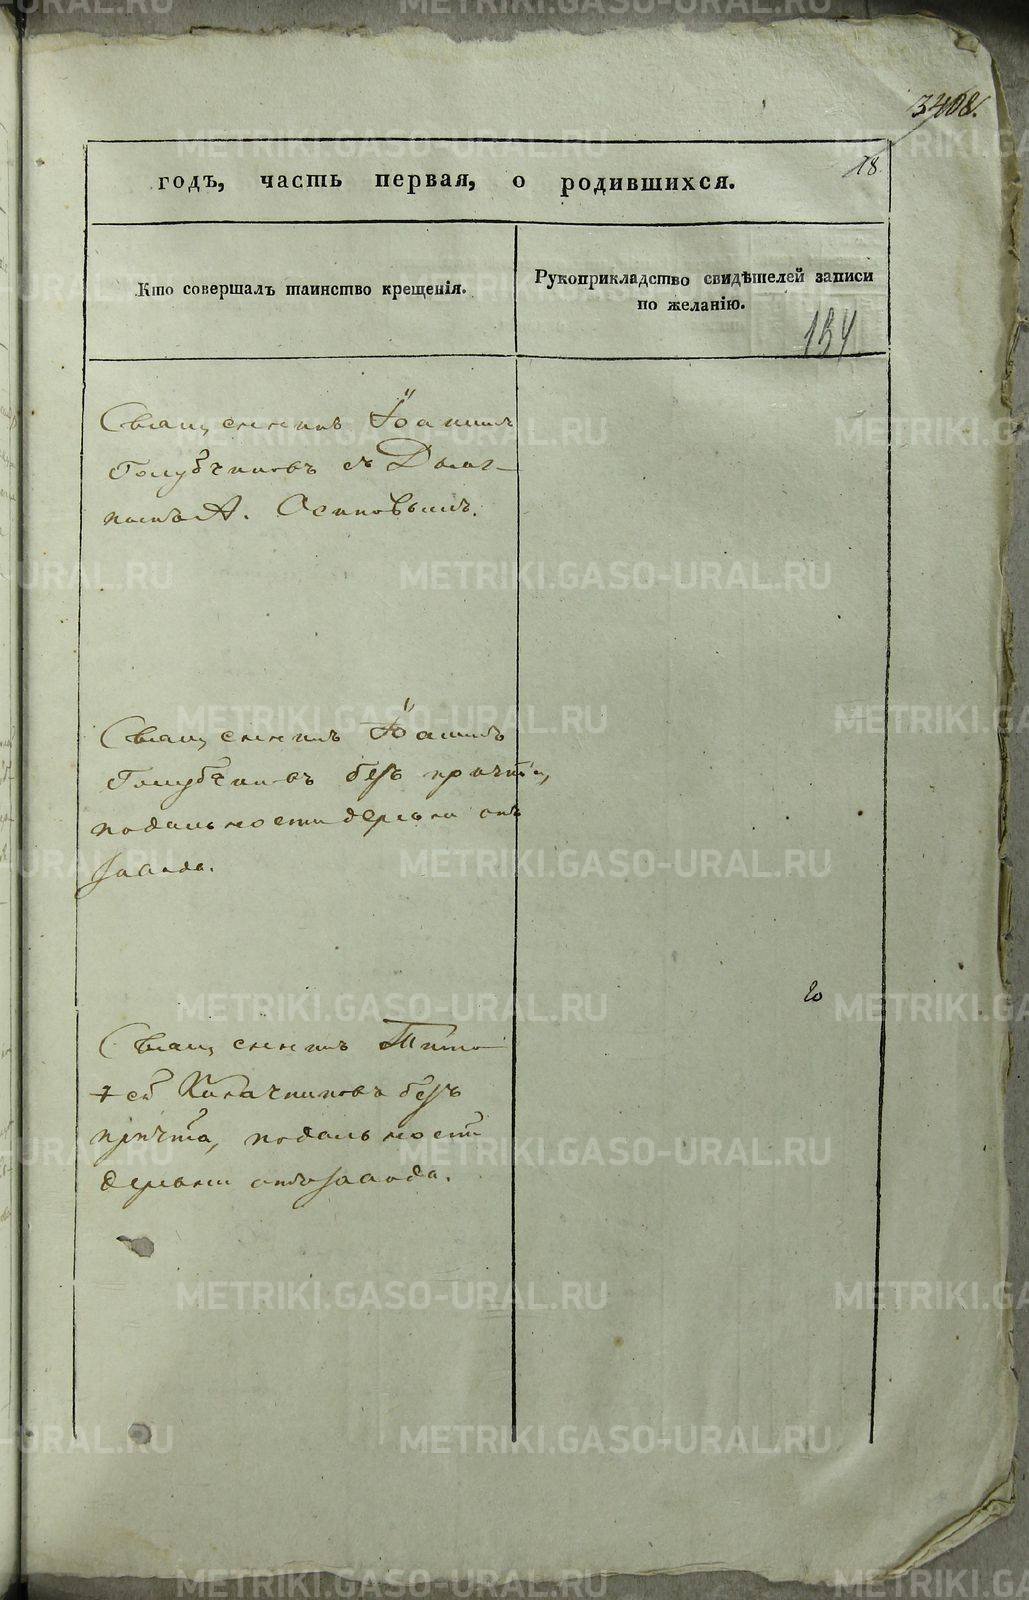 3408.
18
годъ, часть первая, о родившихся.
Кто совершалъ таинство крещенія.
Рукоприкладство свидѣтелей записи
по желанію.
134
Священникъ Іоаннъ
Голубчиковъ съ Дьяч-
комъ А. Осиповымъ.
Священникъ Іоаннъ
Голубчиковъ безъ причта,
подальности деревни отъ
завода.
20
Священникъ Тимо
ѳей Калачниковъ безъ
причта, подальности
деревни отъ завода.
METRIKI.GASO-URAL.RU